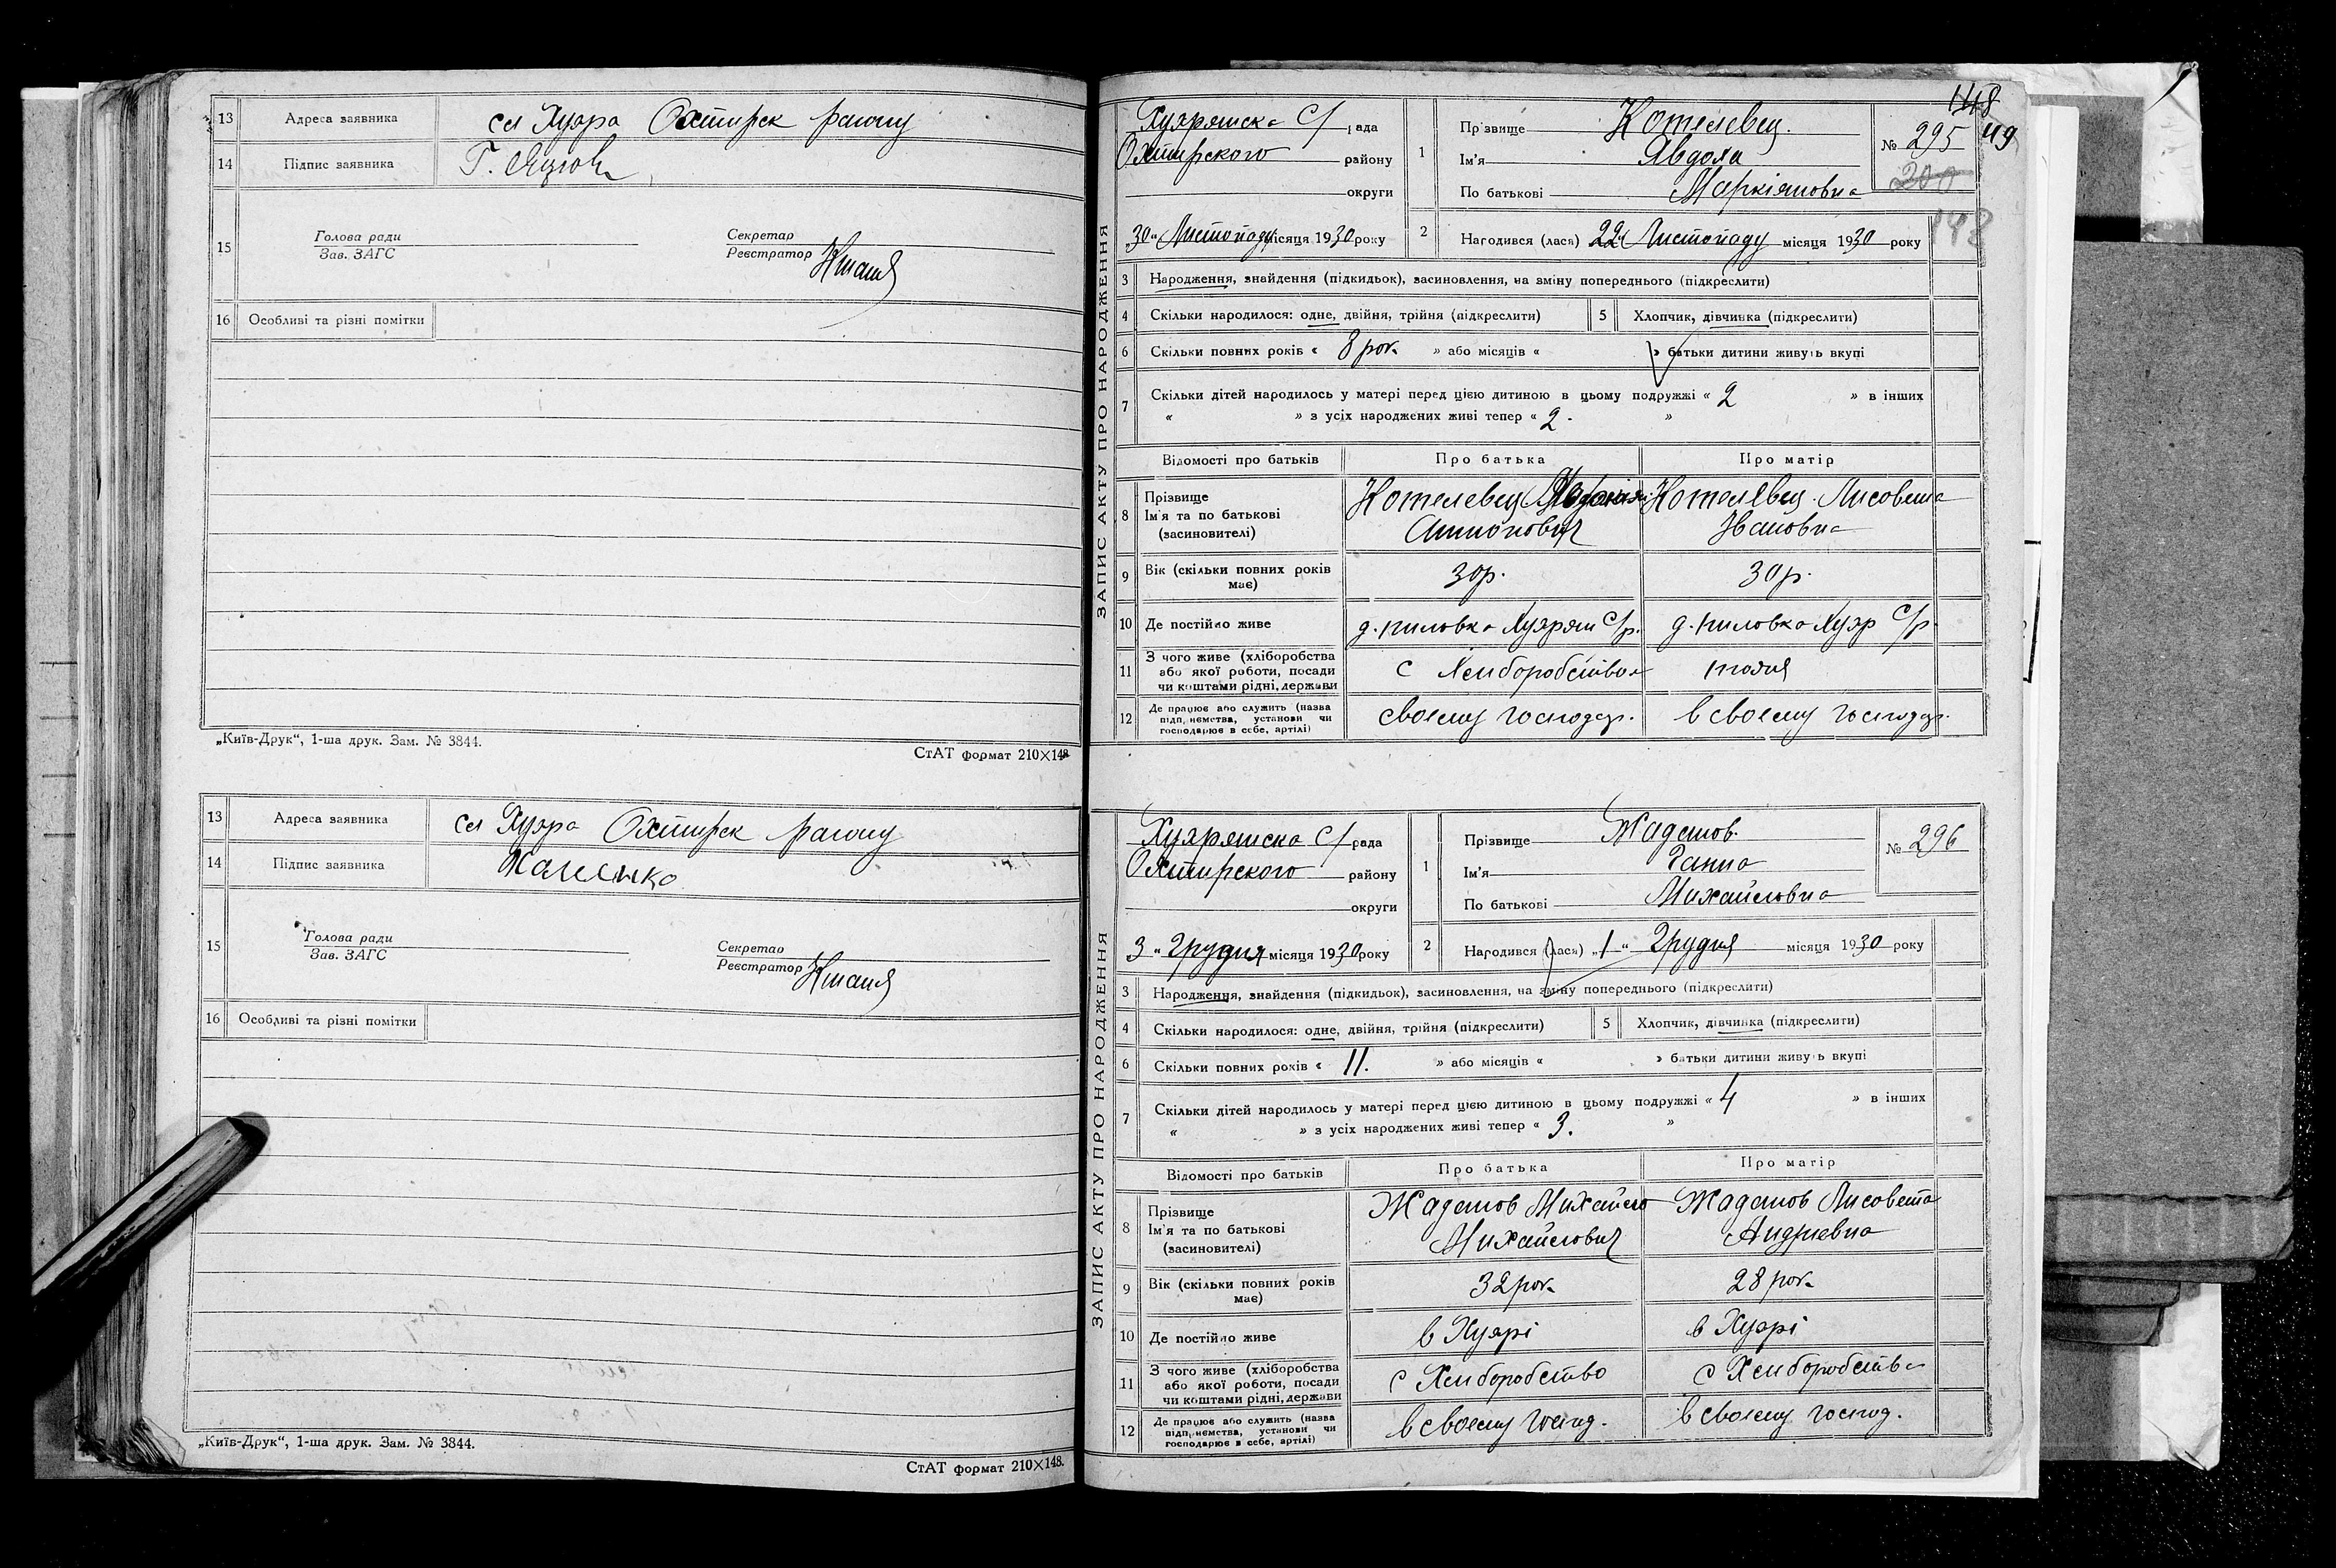 13 Адреса заявника сл Хухра Охтирск району
14 Підпис заявника Г.
15 Голова ради
Зав. ЗАГС
Секретар
Реєстратор
16 Особливі та різні помітки
„Київ-Друк“, 1-ша друк. Зам. № 3844.
СтАТ формат 210×148
13 Адреса заявника сл Хухра Охтирск району
14 Підпис заявника
15 Голова ради
Зав. ЗАГС
Секретар
Реєстратор
16 Особливі та різні помітки
„Київ-Друк“, 1-ша друк. Зам. № 3844.
СтАТ формат 210×148.
148
49
ЗАПИС АКТУ ПРО НАРОДЖЕННЯ
Хухрянська С/рада
Охтирского району
округи
30 „ Листопаду місяця 1930 року
1 Прізвище Котелевец.
Ім'я Явдоха
По батькові Маркіяновна
№ 295
200
148
2 Народився (лася) 22 „ Листопаду місяця 1930 року
3 Народження, знайдення (підкидьок), засиновлення, на зміну попереднього (підкреслити)
4 Скільки народилося: одне, двійня, трійня (підкреслити)
5 Хлопчик, дівчинка (підкреслити)
6 Скільки повних років « 8 рок. » або місяців « » батьки дитини живуть вкупі
7 Скільки дітей народилось у матері перед цією дитиною в цьому подружжі « 2 » в інших
« » з усіх народжених живі тепер « 2. »
Відомості про батьків Про батька Про матір
8 Прізвище
Ім'я та по батькові
(засиновителі)
Котелевец
Антонович
Котелевец Лисовета
Івановна
9 Вік (скільки повних років має) 30р. 30р.
10 Де постійно живе д. Пиловка Хухрян С/р. д. Пиловка Хухр С/р.
11 З чого живе (хліборобства
або якої роботи, посади
чи коштами рідні, держави
с Хлиборобства тожя
12 Де працює або служить (назва
підприємства, установи чи
господарює в себе, артілі)
своему господар. в своему господар.
ЗАПИС АКТУ ПРО НАРОДЖЕННЯ
Хухрянска С/рада
Охтирского району
округи
3 „ Грудня місяця 1930 року
1 Прізвище Жаданов.
Ім'я Ганна
По батькові Михайловна
№ 296
2 Народився (лася) „1“ Грудня місяця 1930 року
3 Народження, знайдення (підкидьок), засиновлення, на зміну попереднього (підкреслити)
4 Скільки народилося: одне, двійня, трійня (підкреслити)
5 Хлопчик, дівчинка (підкреслити)
6 Скільки повних років « 11. » або місяців « » батьки дитини живуть вкупі
7 Скільки дітей народилось у матері перед цією дитиною в цьому подружжі « 4 » в інших
« » з усіх народжених живі тепер « 3. »
Відомості про батьків Про батька Про матір
8 Прізвище
Ім'я та по батькові
(засиновителі)
Жаданов Михайло
Михайлович
Жаданов Лисовета
Андриевна
9 Вік (скільки повних років має) 32 рок. 28 рок.
10 Де постійно живе в Хухрі в Хухрі
11 З чого живе (хліборобства
або якої роботи, посади
чи коштами рідні, держави
с Хлиборобство с Хлиборобства
12 Де працює або служить (назва
підприємства, установи чи
господарює в себе, артілі)
в своему господ. в своему господ.